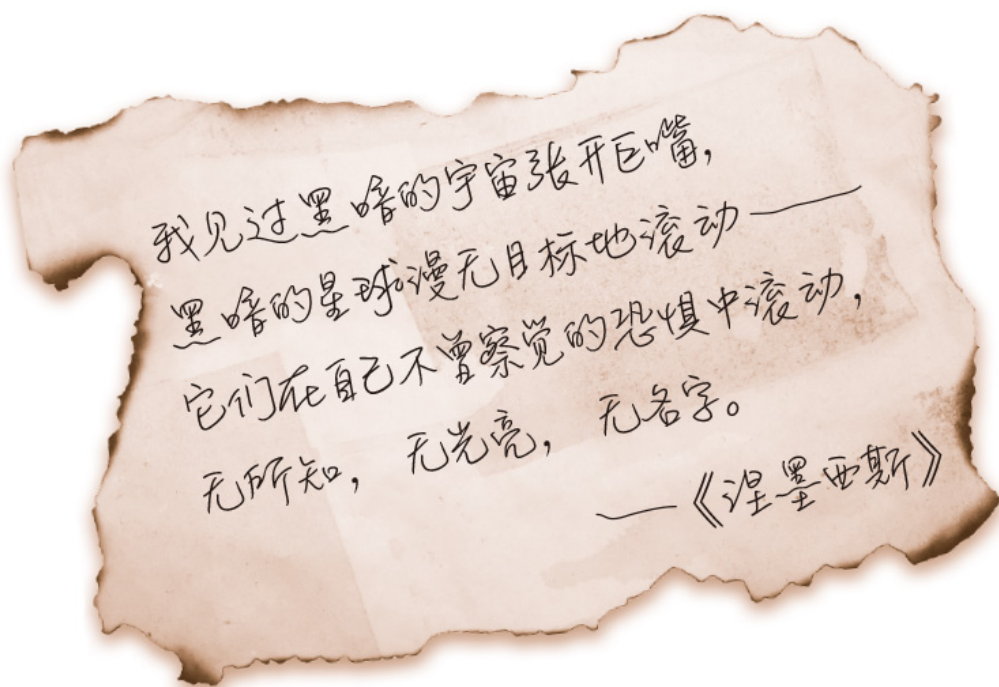 我见过黑暗的宇宙张开巨嘴，
黑暗的星球漫无目标地滚动——
它们在自己不曾察觉的恐惧中滚动，
无所知，无光亮，无名字。
——《涅墨西斯》